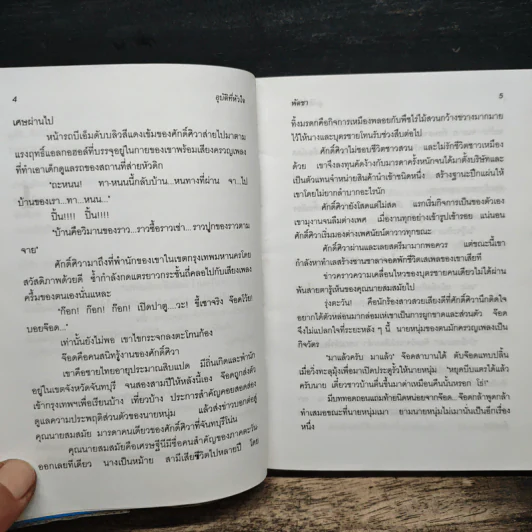 4
อุบัติที่หัวใจ
เศษผ่านไป
หน้ารถบีเอ็มดับบลิวสีแดงเข้มของศักดิ์ศิวาส่ายไปมาตาม
แรงฤทธิ์แอลกอฮอล์ที่บรรจุอยู่ในกายของเขาพร้อมเสียงครวญเพลง
ที่ทำเอาเด็กดูแลรถของสถานที่ส่ายหัวดิก
"ถะหนน! ทา-หนนนี้กลับบ้าน...หนทางที่ผ่าน จา...ไป
บ้านของเรา...ทา...หนน..."
ปิ้น!!!! ปิ้น!!!!
"บ้านคือวิมานของราว...ราวซื้อราวเช่า...ราวปลูกของราวตาม
จาย"
ศักดิ์ศิวามาถึงที่พำนักของเขาในเขตกรุงเทพมหานครโดย
สวัสดิภาพด้วยดี ซ้ำกำลังกดแตรยาวกระชั้นถี่คลอไปกับเสียงเพลง
ครึ้มของตนเองนั่นแหละ
"ก๊อก! ก๊อก! ก๊อก! เปิดปาตู...วะ! ขี้เซาจริง จ๊อดโว้ย!
บอยจ๊อด..."
เท่านั้นยังไม่พอ เขาไขกระจกลงตะโกนก้อง
จ๊อดคือคนสนิทรู้งานของศักดิ์ศิวา
เขาคือชายไทยอายุประมาณสิบแปด มีถิ่นเกิดและพำนัก
อยู่ในเขตจังหวัดจันทบุรี จนสองสามปีให้หลังนี้เอง จ๊อดถูกส่งตัว
เข้ากรุงเทพฯเพื่อเรียนบ้าง เที่ยวบ้าง ประการสำคัญคอยสอดส่อง
ดูแลความประพฤติส่วนตัวของนายหนุ่ม แล้วส่งข่าวบอกต่อสู่
คุณนายสมสมัย มารดาคนเดียวของศักดิ์ศิวาที่จันทบุรีโน่น
คุณนายสมสมัยคือเศรษฐีนีมีชื่อคนสำคัญของภาคตะวัน
ออกเลยทีเดียว นางเป็นหม้าย สามีเสียชีวิตไปหลายปี โดย
พัดชา
5
ทิ้งมรดกคือกิจการเหมืองพลอยกับพืชไร่ไม้สวนกว้างขวางมากมาย
ไว้ให้นางและบุตรชายโทนร่วงสืบต่อไป
ศักดิ์ศิวาไม่ชอบชีวิตชาวสวน และไม่รักชีวิตชาวเหมือง
ด้วย เขาจึงลงทุนคัดง้างกับมารดาครั้งหนักจนได้มาตั้งบริษัทและ
เป็นตัวแทนจำหน่ายสินค้านำเข้าชนิดหนึ่ง สร้างฐานะปึกแผ่นให้
เขาโดยไม่ยากลำบากอะไรนัก
ศักดิ์ศิวายังโสดแต่ไม่สด แทบเริ่มกิจการเป็นของตัวเอง
เขามุงานจนลืมต่างเพศ เมื่องานทุกอย่างเข้ารูปเข้ารอย แน่นอน
ศักดิ์ศิวาเริ่มมองต่างเพศนัยน์ตาวาวทุกขณะ
ศักดิ์ศิวาผ่านและเลยสตรีมามากพอควร แต่ขณะนี้เขา
กำลังหาทำเลสร้างชานชาลาจอดพักชีวิตเสเพลของเขาเสียที
ข่าวคราวความเคลื่อนไหวของบุตรชายคนเดียวไม่ได้ผ่าน
พ้นสายตารู้เห็นของคุณนายสมสมัยไป
รุ่งตะวัน! คือนักร้องสาวสวยเสียงดีที่ศักดิ์ศิวานึกติดใจ
อยากได้ตัวหล่อนมากล่อมเห่เขาเป็นการผูกขาดและส่วนตัว จ๊อด
จึงไม่แปลกใจที่ระยะหลัง ๆ นี้ นายหนุ่มของตนมักครวญเพลงเป็น
กิจวัตร
"มาแล้วครับ มาแล้ว" จ๊อดสาบานได้ ดับจ๊อดแทบปลิ้น
เมื่อวิ่งทะลุมุ้งเพื่อมาเปิดประตูรั้วให้นายหนุ่ม "หยุดบีบแตรได้แล้ว
ครับนาย เดี๋ยวชาวบ้านตื่นขึ้นมาด่าเหมือนคืนนั้นหรอก โธ่!"
มีบททอดถอนแถมท้ายนิดหน่อยจากจ๊อด จ๊อดกล้าพูดกล้า
ทำเสมอขณะที่นายหนุ่มเมา ยามนายหนุ่มไม่เมานั่นเป็นอีกเรื่อง
หนึ่ง